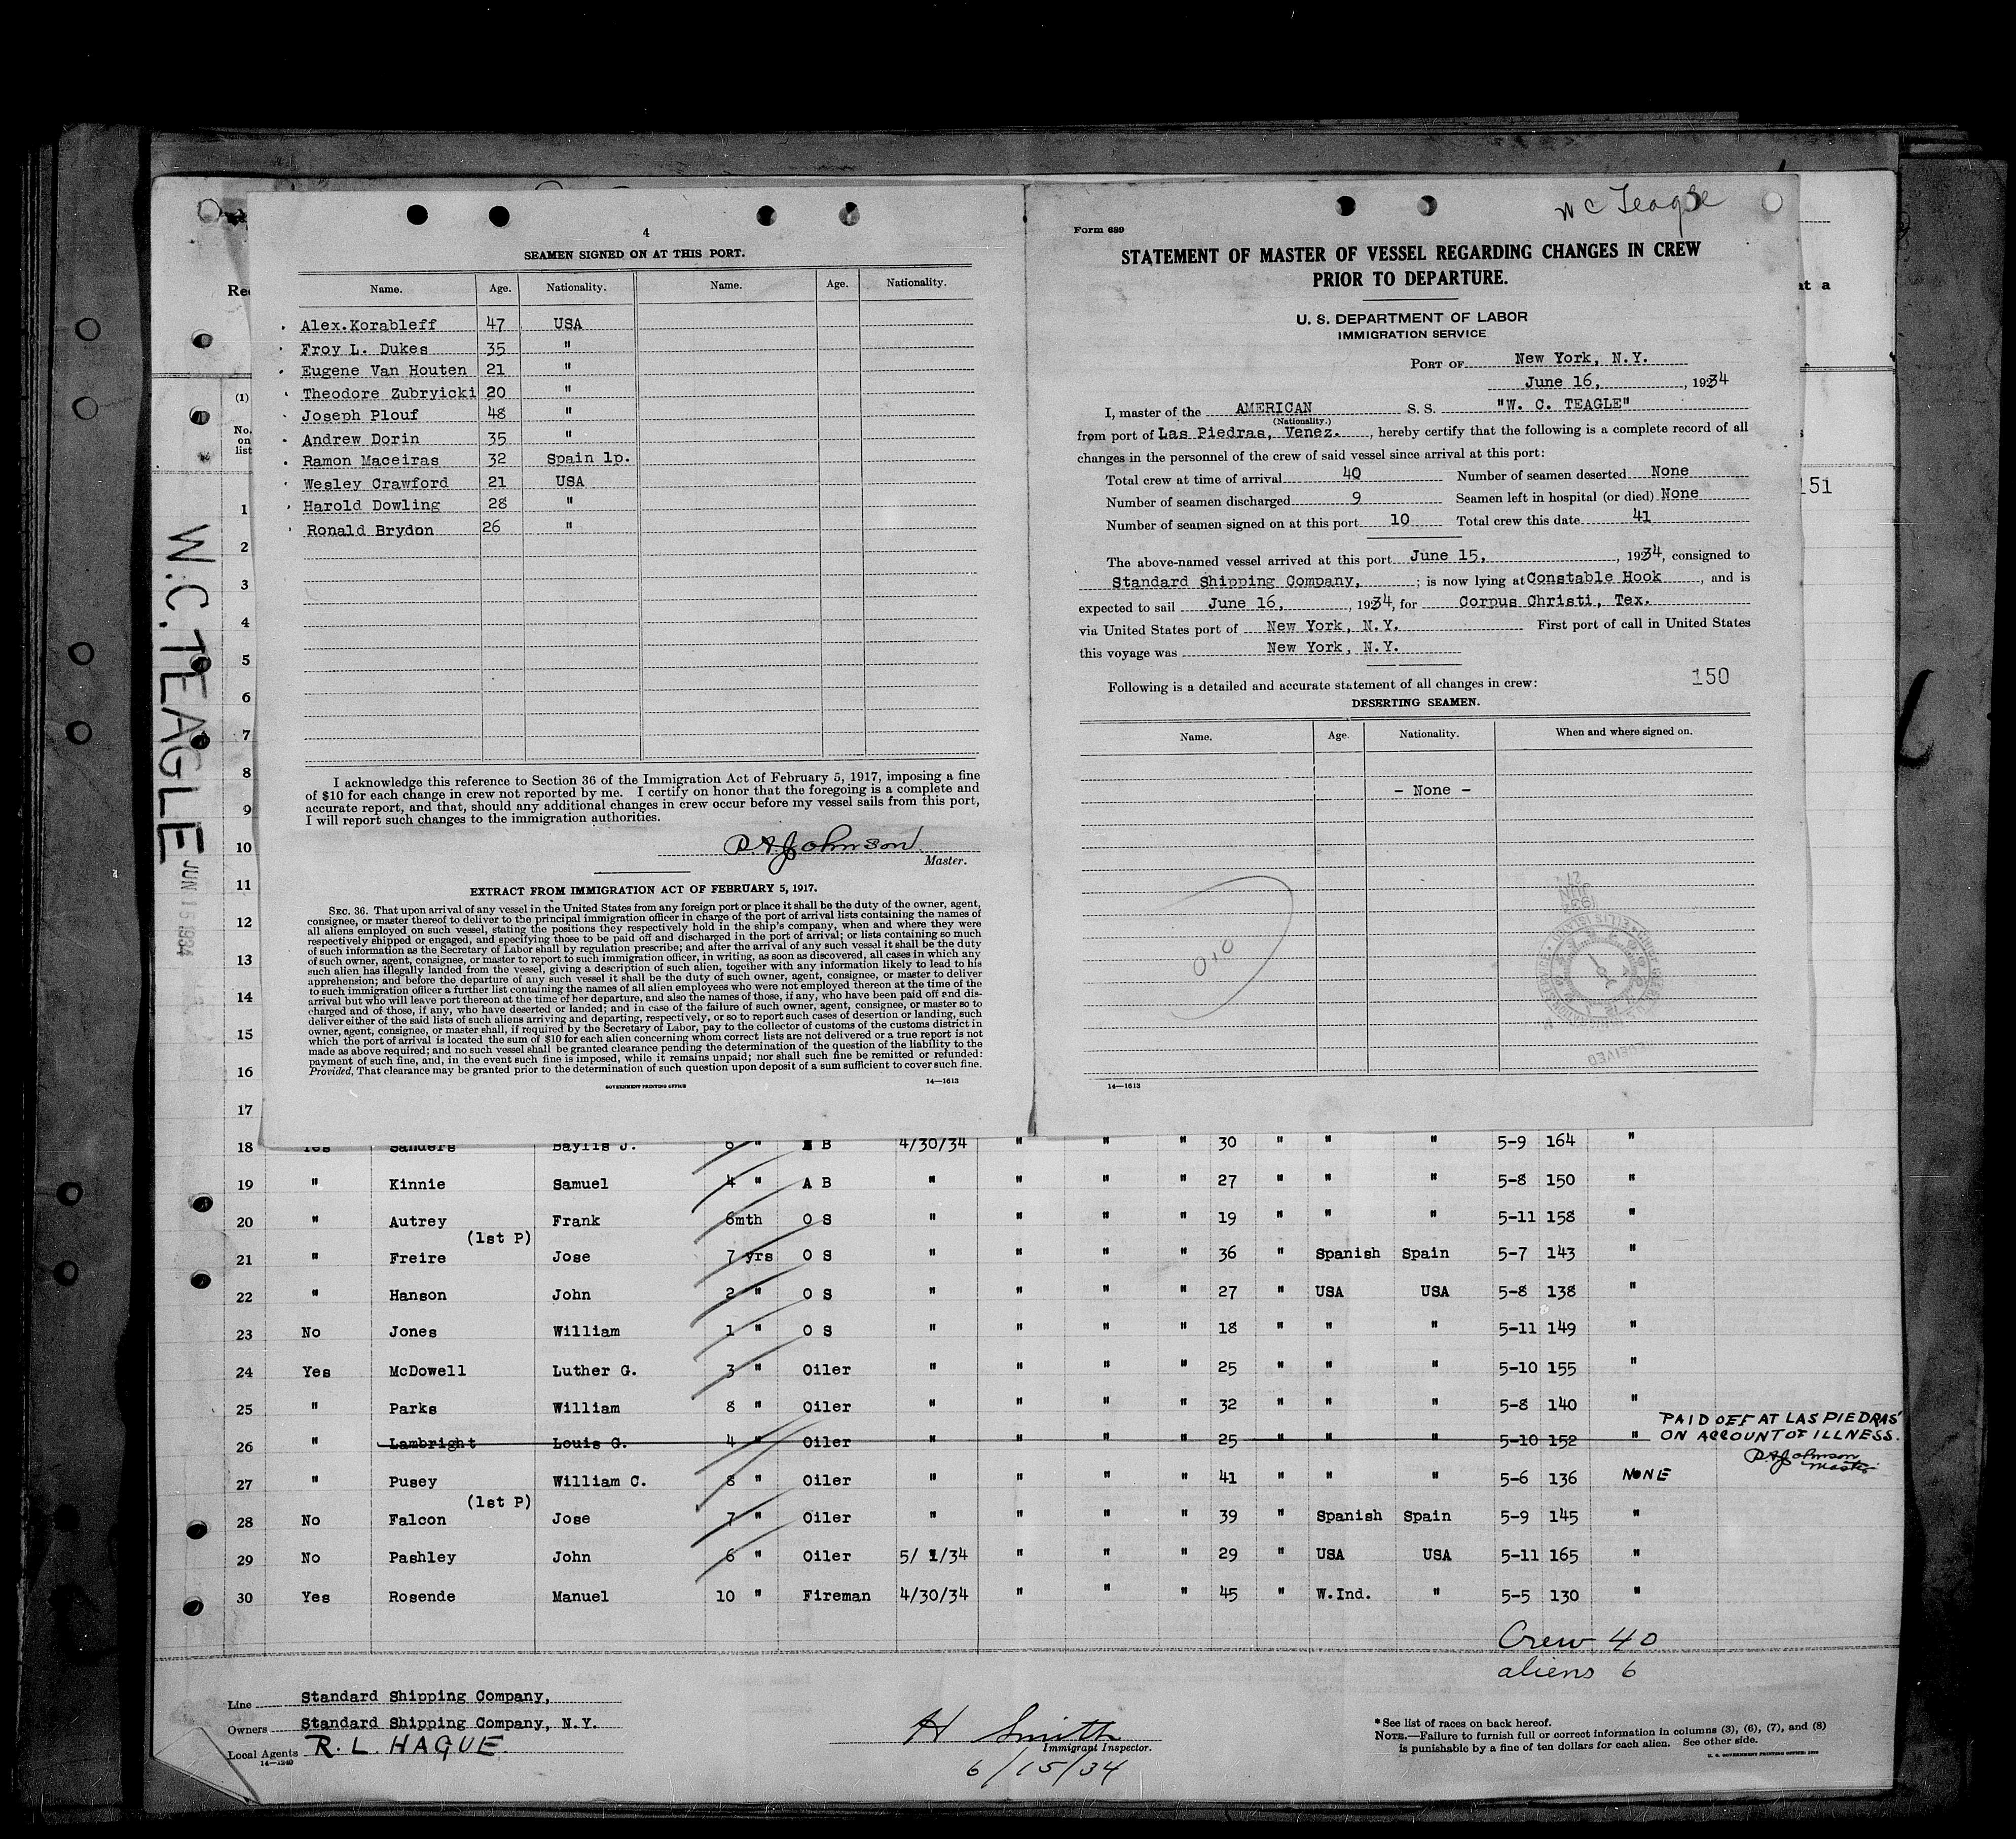 W.C. TEAGLE
JUN 15 1934
4
SEAMEN SIGNED ON AT THIS PORT.
Name. Age. Nationality. Name. Age. Nationality.
Alex.Korableff 47 USA
Froy L. Dukes 35 "
Eugene Van Houten 21 "
Theodore Zubryicki 20 "
Joseph Plouf 48 "
Andrew Dorin 35 "
Ramon Maceiras 32 Spain 1p.
Wesley Crawford 21 USA
Harold Dowling 28 "
Ronald Brydon 26 "
I acknowledge this reference to Section 36 of the Immigration Act of February 5, 1917, imposing a fine
of $10 for each change in crew not reported by me. I certify on honor that the foregoing is a complete and
accurate report, and that, should any additional changes in crew occur before my vessel sails from this port,
I will report such changes to the immigration authorities.
P.A. Johnson
Master.
EXTRACT FROM IMMIGRATION ACT OF FEBRUARY 5, 1917.
SEC. 36. That upon arrival of any vessel in the United States from any foreign port or place it shall be the duty of the owner, agent,
consignee, or master thereof to deliver to the principal immigration officer in charge of the port of arrival lists containing the names of
all aliens employed on such vessel, stating the positions they respectively hold in the ship's company, when and where they were
respectively shipped or engaged, and specifying those to be paid off and discharged in the port of arrival; or lists containing so much
of such information as the Secretary of Labor shall by regulation prescribe; and after the arrival of any such vessel it shall be the duty
of such owner, agent, consignee, or master to report to such immigration officer, in writing, as soon as discovered, all cases in which any
such alien has illegally landed from the vessel, giving a description of such alien, together with any information likely to lead to his
apprehension; and before the departure of any such vessel it shall be the duty of such owner, agent, consignee, or master to deliver
to such immigration officer a further list containing the names of all alien employees who were not employed thereon at the time of the
arrival but who will leave port thereon at the time of her departure, and also the names of those, if any, who have been paid off and dis-
charged and of those, if any, who have deserted or landed; and in case of the failure of such owner, agent, consignee, or master so to
deliver either of the said lists of such aliens arriving and departing, respectively, or so to report such cases of desertion or landing, such
owner, agent, consignee, or master shall, if required by the Secretary of Labor, pay to the collector of customs of the customs district in
which the port of arrival is located the sum of $10 for each alien concerning whom correct lists are not delivered or a true report is not
made as above required; and no such vessel shall be granted clearance pending the determination of the question of the liability to the
payment of such fine, and, in the event such fine is imposed, while it remains unpaid; nor shall such fine be remitted or refunded:
Provided, That clearance may be granted prior to the determination of such question upon deposit of a sum sufficient to cover such fine.
GOVERNMENT PRINTING OFFICE 14—1613
W C Teagle
Form 689
STATEMENT OF MASTER OF VESSEL REGARDING CHANGES IN CREW
PRIOR TO DEPARTURE.
U. S. DEPARTMENT OF LABOR
IMMIGRATION SERVICE
PORT OF New York, N.Y.
June 16, , 1934
I, master of the AMERICAN S. S. "W. C. TEAGLE"
(Nationality.)
from port of Las Piedras, Venez. , hereby certify that the following is a complete record of all
changes in the personnel of the crew of said vessel since arrival at this port:
Total crew at time of arrival 40 Number of seamen deserted None
Number of seamen discharged 9 Seamen left in hospital (or died) None
Number of seamen signed on at this port 10 Total crew this date 41
The above-named vessel arrived at this port June 15, , 1934, consigned to
Standard Shipping Company, ; is now lying at Constable Hook , and is
expected to sail June 16, , 1934, for Corpus Christi, Tex.
via United States port of New York, N.Y. First port of call in United States
this voyage was New York, N.Y.
150
Following is a detailed and accurate statement of all changes in crew:
DESERTING SEAMEN.
Name. Age. Nationality. When and where signed on.
- None -
RECEIVED
14—1613
at a
151
(1)
No.
on
list
1
2
3
4
5
6
7
8
9
10
11
12
13
14
15
16
17
18 Yes Sanders Baylis J. 6 " A B 4/30/34 " " " 30 " " " 5-9 164 "
19 " Kinnie Samuel 4 " A B " " " " 27 " " " 5-8 150 "
20 " Autrey Frank 6mth O S " " " " 19 " " " 5-11 158 "
(1st P)
21 " Freire Jose 7 yrs O S " " " " 36 " Spanish Spain 5-7 143 "
22 " Hanson John 2 " O S " " " " 27 " USA USA 5-8 138 "
23 No Jones William 1 " O S " " " " 18 " " " 5-11 149 "
24 Yes McDowell Luther G. 3 " Oiler " " " " 25 " " " 5-10 155 "
25 " Parks William 8 " Oiler " " " " 32 " " " 5-8 140 "
26 " Lambright Louis G. 4 " Oiler " " " " 25 " " " 5-10 152 "
PAID OFF AT LAS PIEDRAS
ON ACCOUNT OF ILLNESS.
P.A. Johnson
Master
27 " Pusey William C. 8 " Oiler " " " " 41 " " " 5-6 136 NONE
(1st P)
28 No Falcon Jose 7 " Oiler " " " " 39 " Spanish Spain 5-9 145 "
29 No Pashley John 6 " Oiler 5/ 1/34 " " " 29 " USA USA 5-11 165 "
30 Yes Rosende Manuel 10 " Fireman 4/30/34 " " " 45 " W.Ind. " 5-5 130 "
Crew 40
aliens 6
Line Standard Shipping Company,
Owners Standard Shipping Company, N.Y.
Local Agents R. L. HAGUE.
14—1240
H Smith
Immigrant Inspector.
6/15/34
* See list of races on back hereof.
NOTE.—Failure to furnish full or correct information in columns (3), (6), (7), and (8)
is punishable by a fine of ten dollars for each alien. See other side.